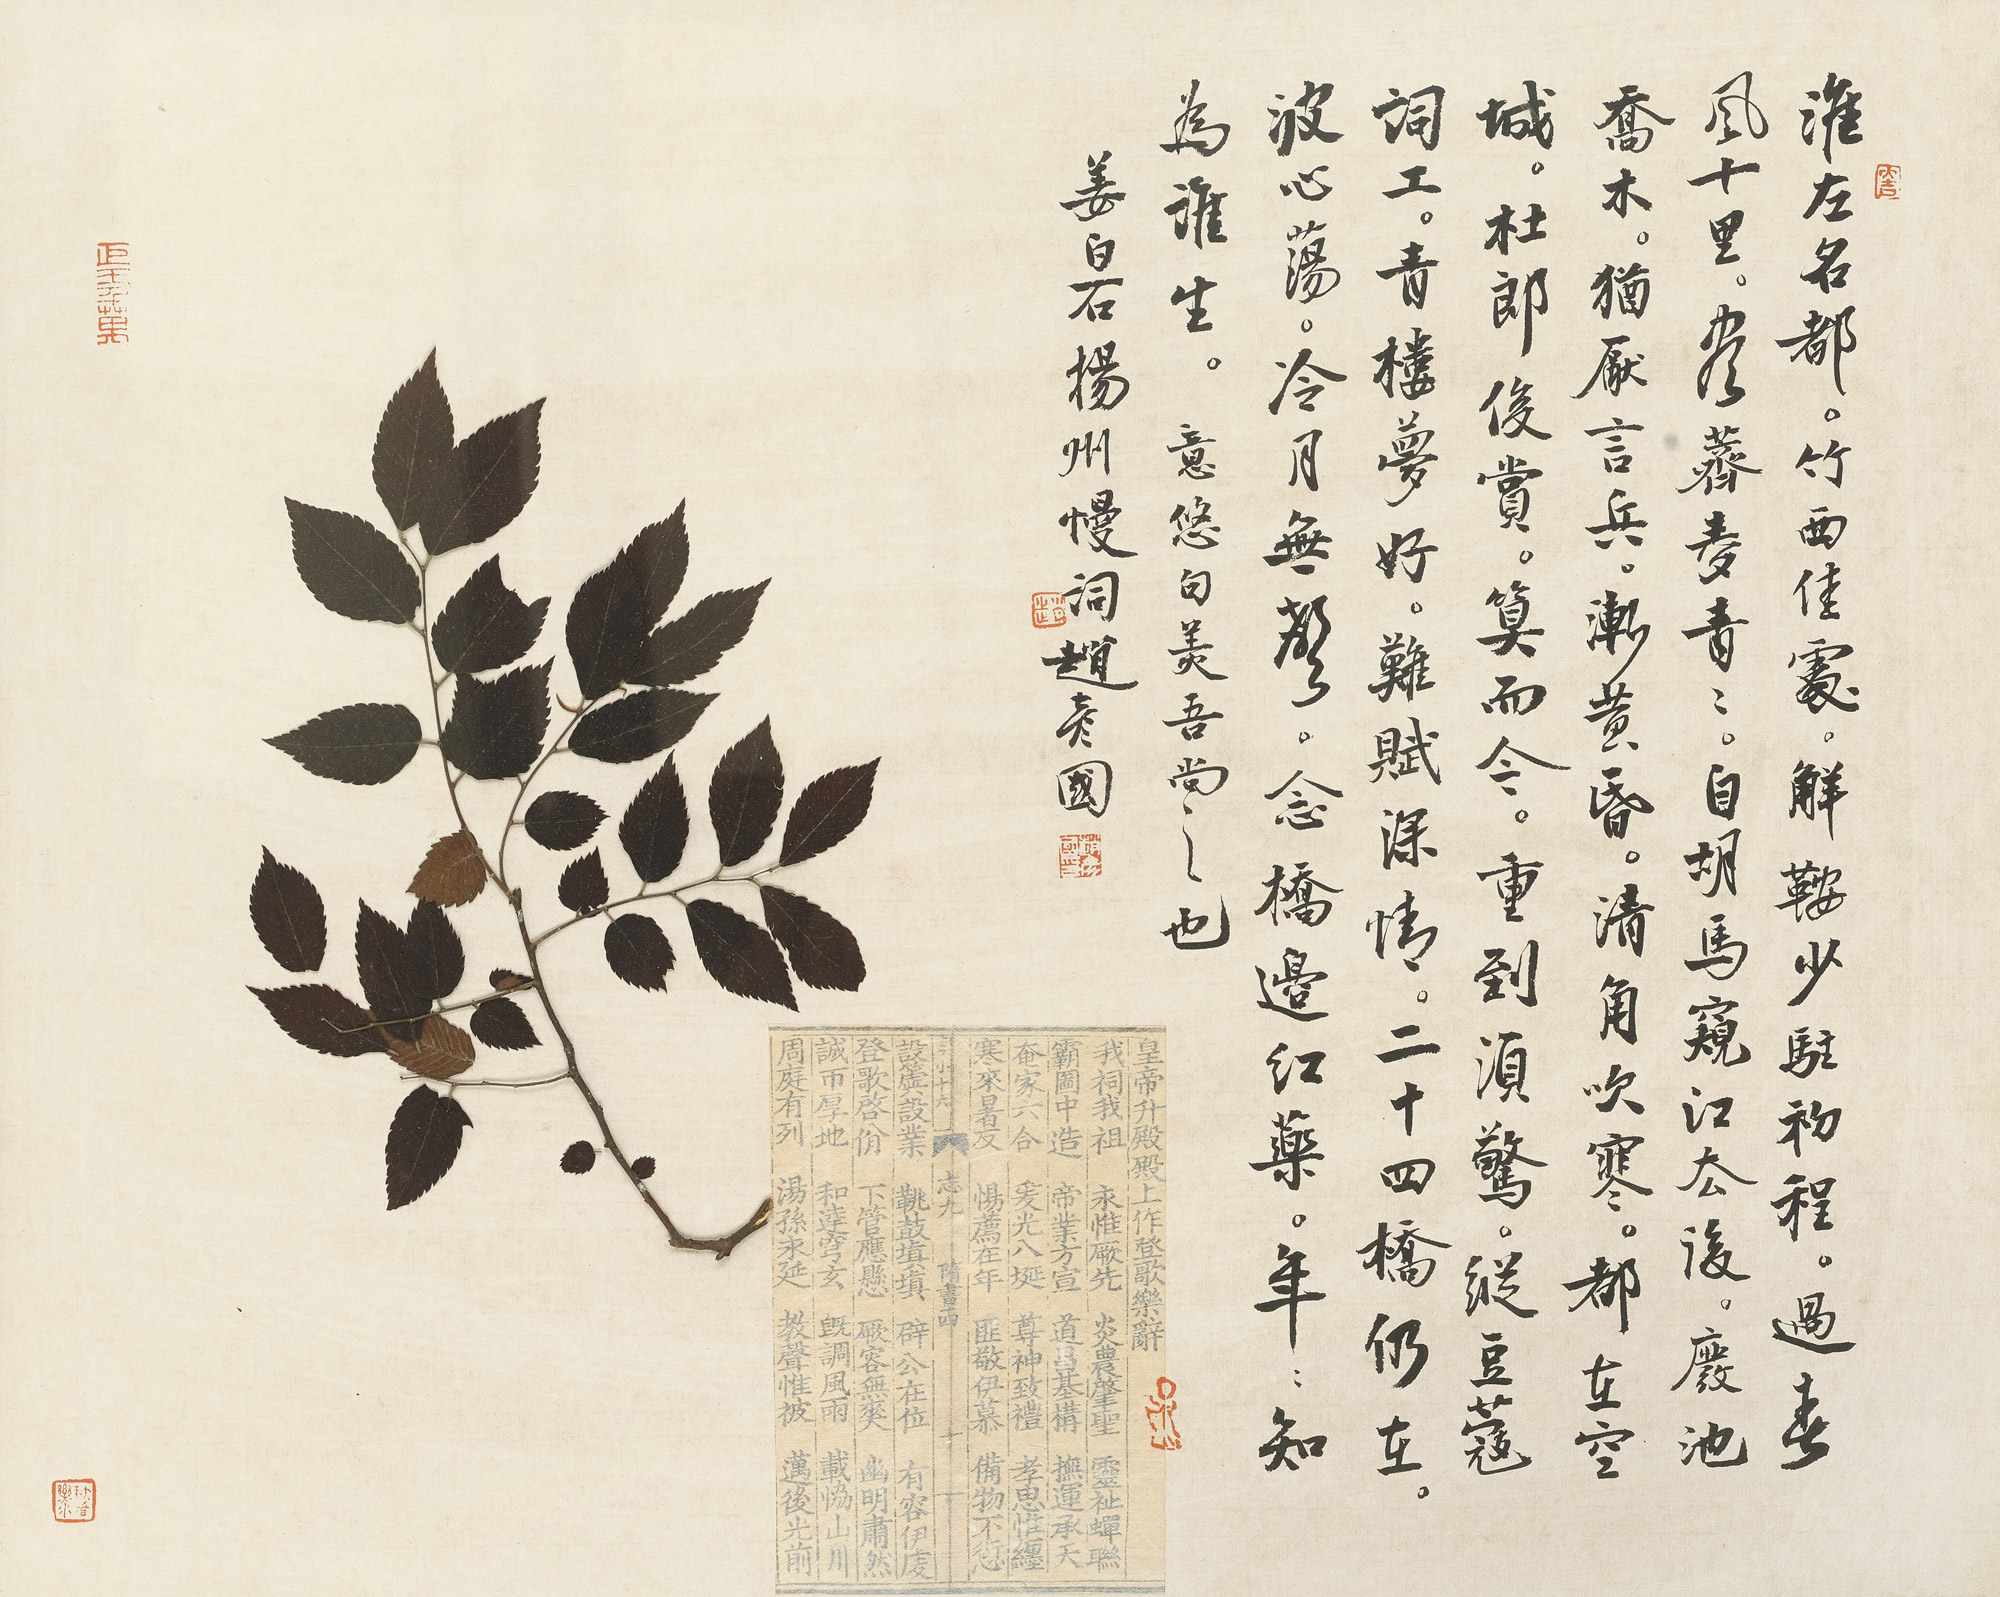 淮左名都。竹西佳處。解鞍少駐初程。過春
風十里。盡薺麥青〻。自胡馬窺江去後。廢池
喬木。猶厭言兵。漸黃昏。清角吹寒。都在空
城。杜郎俊賞。算而今。重到須驚。縱豆蔻
詞工。青樓夢好。難賦深情。二十四橋仍在。
波心蕩。冷月無聲。念橋邊紅藥。年〻知
為誰生。 意悠句美吾尚之也
姜白石揚州慢詞趙彥國
皇帝升殿殿上作登歌樂辭
我祠我祖 永惟厥先 炎農肇聖 靈祉蟬聯
霸圖中造 帝業方宣 道昌基構 撫運承天
奄家六合 爰光八埏 尊神致禮 孝思惟纏
寒來暑反 惕薦在年 匪敬伊慕 備物不愆
志九 隋書
設簴設業 鞉鼓填填 辟公在位 有容伊虔
登歌啓佾 下管應懸 厥容無爽 幽明肅然
誠帀厚地 和達穹玄 既調風雨 載協山川
周庭有列 湯孫永延 教聲惟被 邁後光前